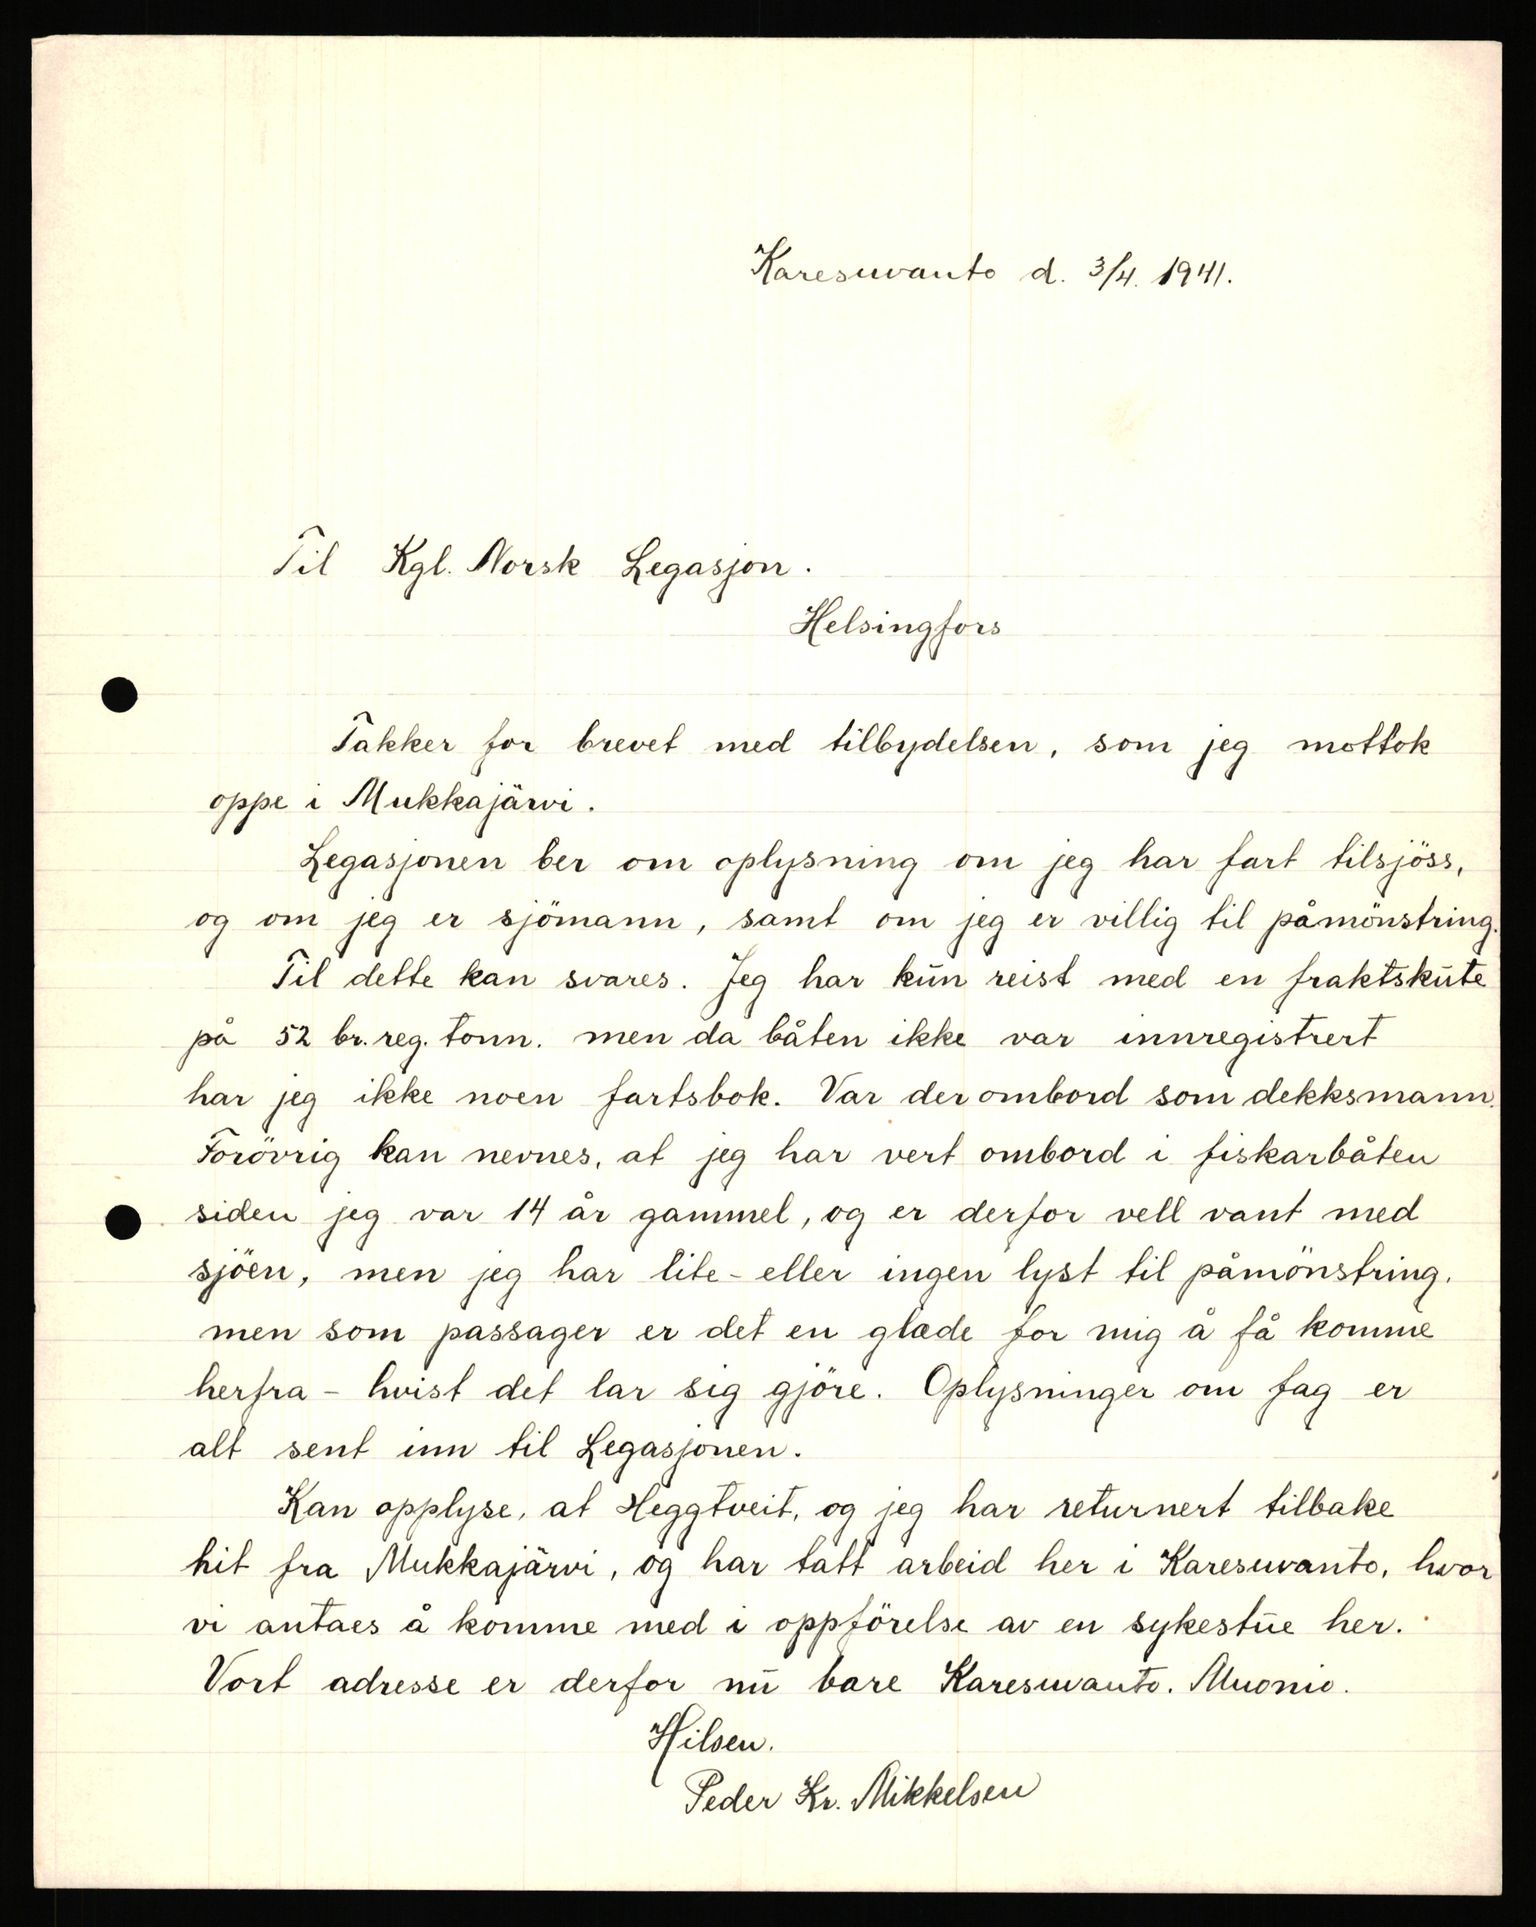 Karesuvanto d. 3/4. 1941.
Til Kgl. Norsk Legasjon.
Helsingfors
Takker for brevet med tilbydelsen, som jeg mottok
oppe i Mukkajärvi.
Legasjonen ber om oplysning om jeg har fart tilsjöss,
og om jeg er sjömann, samt om jeg er villig til påmönstring.
Til dette kan svares. Jeg har kun reist med en fraktskute
på 52 br. reg. tonn. men da båten ikke var innregistrert
har jeg ikke noen fartsbok. Var der ombord som dekksmann.
Forövrig kan nevnes, at jeg har vert ombord i fiskarbåten
siden jeg var 14 år gammel, og er derfor vell vant med
sjöen, men jeg har lite - eller ingen lyst til påmönstring.
men som passager er det en glæde for mig å få komme
herfra - hvist det lar sig gjöre. Oplysninger om fag er
alt sent inn til Legasjonen.
Kan opplyse, at Heggtveit, og jeg har returnert tilbake
hit fra Mukkajärvi, og har tatt arbeid her i Karesuvanto, hvor
vi antaes å komme med i oppförelse av en sykestue her.
Vort adresse er derfor nu bare Karesuvanto. Muonio.
Hilsen.
Peder Kr. Mikkelsen